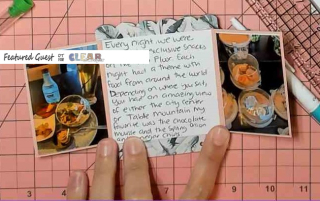 Featured Guest OF THE CLEAR
Every night we were
exclusive snacks
Floor. Each
night had a theme with
food from around the world
Depending on where you sit,
you have an amazing view
of either the city center
or Table Mountain. My
favorite was the chocolate
mousse and the
chips
1
2
3
7
8
9
10
11